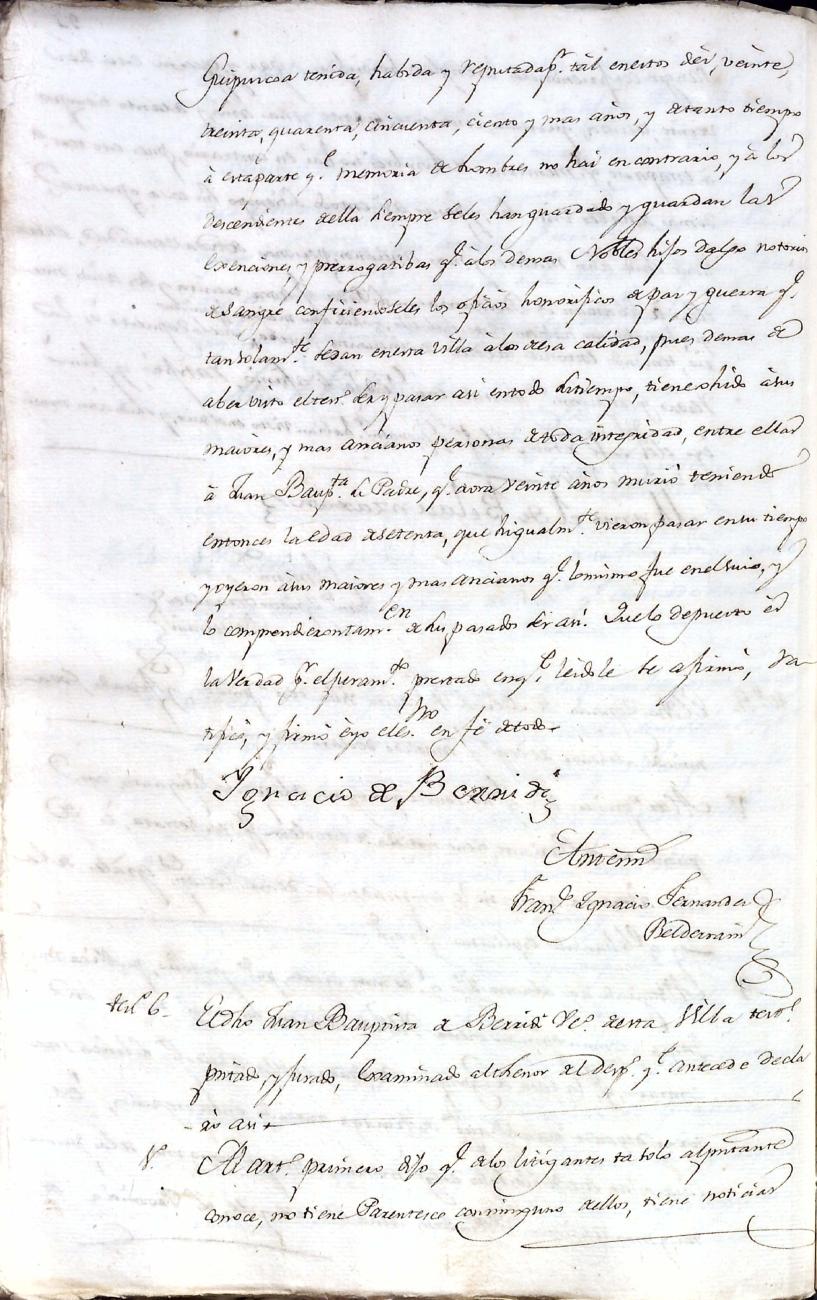 Guipuscoa tenida, habida y reputada pr. tal en estos diez, veinte,
treinta, quarenta, cincuenta, ciento y mas años, y de tanto tiempo
à esta parte ql. memoria de hombres no hai en contrario, y à los
descendientes de ella siempre se les han guardado y guardan las
exenciones y prerrogatibas q. à los demas Nobles hijos dalgo notorios
de Sangre confiriendoseles los oficios honorificos de paz y guerra q.
tan solamte. se dan en esta villa à los de esa calidad, pues demas de
aber visto el test. ser y pasar asi en todo su tiempo, tiene ohido à sus
maiores, y mas ancianos personas de toda integridad, entre ellas
à Juan Baupta. su Padre, q. aora veinte años murió teniendo
entonces la edad de setenta, que higualmte. vieron pasar en su tiempo
y oyeron à sus maiores y mas ancianos q. lo mismo fue en el suio, y
lo comprendieron tamen. de sus pasados ser asi. Que lo depuesto es
la Verdad pr. el juramto. prestado en ql. leidole se afirmó, ra-
tificó, y firmó è yo el essno. en fé de todo.
Ignacio de Berridi
Antemi
Frano. Ignacio Fernandez
Belderrain
testo. 6.
El dho Juan Bauptista de Berridi Vo. de esta Villa testo.
pntado, y jurado, examinado al thenor del desp. ql. antecede decla
-ró asi
1o.
Al arto. primero dijo q. de los litigantes ta solo al pntante
conoce, no tiene Parentesco con ninguno de ellos, tiene noticias